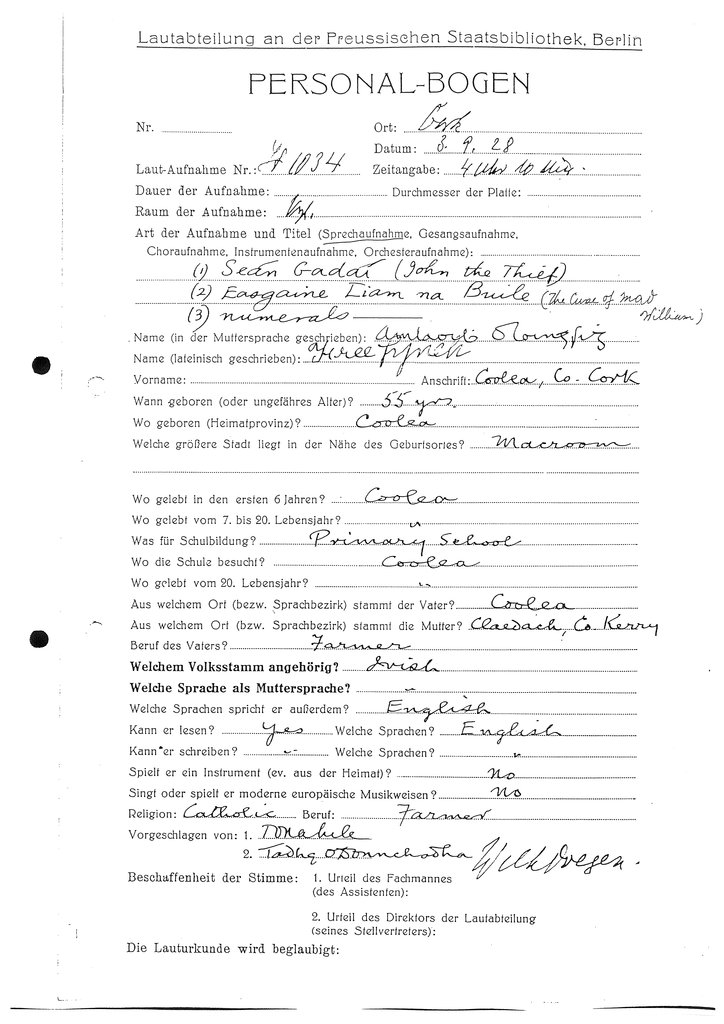 Lautabteilung an der Preussischen Staatsbibliothek, Berlin
PERSONAL-BOGEN
Nr. Ort: Cork
Datum: 3. 9. 28
Laut-Aufnahme Nr.: 1034 Zeitangabe: 4 Uhr 10 Min.
Dauer der Aufnahme: Durchmesser der Platte:
Raum der Aufnahme:
Art der Aufnahme und Titel (Sprechaufnahme, Gesangsaufnahme,
Choraufnahme, Instrumentenaufnahme, Orchesteraufnahme):
(1) Seán Gadaí (John the Thief)
(2) Easgaine Liam na Buile (The Curse of Mad
William)
(3) numerals
Name (in der Muttersprache geschrieben):
Name (lateinisch geschrieben):
Vorname: Anschrift: Coolea, Co. Cork
Wann geboren (oder ungefähres Alter)? 55 yrs.
Wo geboren (Heimatprovinz)? Coolea
Welche größere Stadt liegt in der Nähe des Geburtsortes? Macroom
Wo gelebt in den ersten 6 Jahren? Coolea
Wo gelebt vom 7. bis 20. Lebensjahr? "
Was für Schulbildung? Primary School
Wo die Schule besucht? Coolea
Wo gelebt vom 20. Lebensjahr? "
Aus welchem Ort (bezw. Sprachbezirk) stammt der Vater? Coolea
Aus welchem Ort (bzw. Sprachbezirk) stammt die Mutter? Claedach, Co. Kerry
Beruf des Vaters? Farmer
Welchem Volksstamm angehörig? Irish
Welche Sprache als Muttersprache? "
Welche Sprachen spricht er außerdem? English
Kann er lesen? Yes Welche Sprachen? English
Kann er schreiben? " Welche Sprachen? "
Spielt er ein Instrument (ev. aus der Heimat)? No
Singt oder spielt er moderne europäische Musikweisen? No
Religion: Catholic Beruf: Farmer
Vorgeschlagen von: 1.
2. Tadhg O'Donnchadha Wilh Doegen.
Beschaffenheit der Stimme: 1. Urteil des Fachmannes
(des Assistenten):
2. Urteil des Direktors der Lautabteilung
(seines Stellvertreters):
Die Lauturkunde wird beglaubigt: